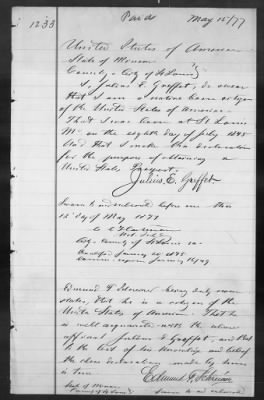 1233
Paid May 15/77
United States of America
State of Missouri
County & City of St Louis
I, Julius E. Greffet, do swear
that I am a native born citizen
of the United States of America.
That I was born at St Louis
Mo on the eighth day of July
And that I make this declaration
for the purpose of obtaining a
United States Passport.
Julius E. Greffet
Sworn to and subscribed before me this
12th day of May 1877
City & County of St Louis
Edmund F. being duly sworn
states, that he is a citizen of the
United States of America. That he
is well acquainted with the above
Julius E Greffet, and that
to the best of his knowledge and belief
the above declaration made by him
is true
Edmund F.
State of Missouri
Sworn to and subscribed